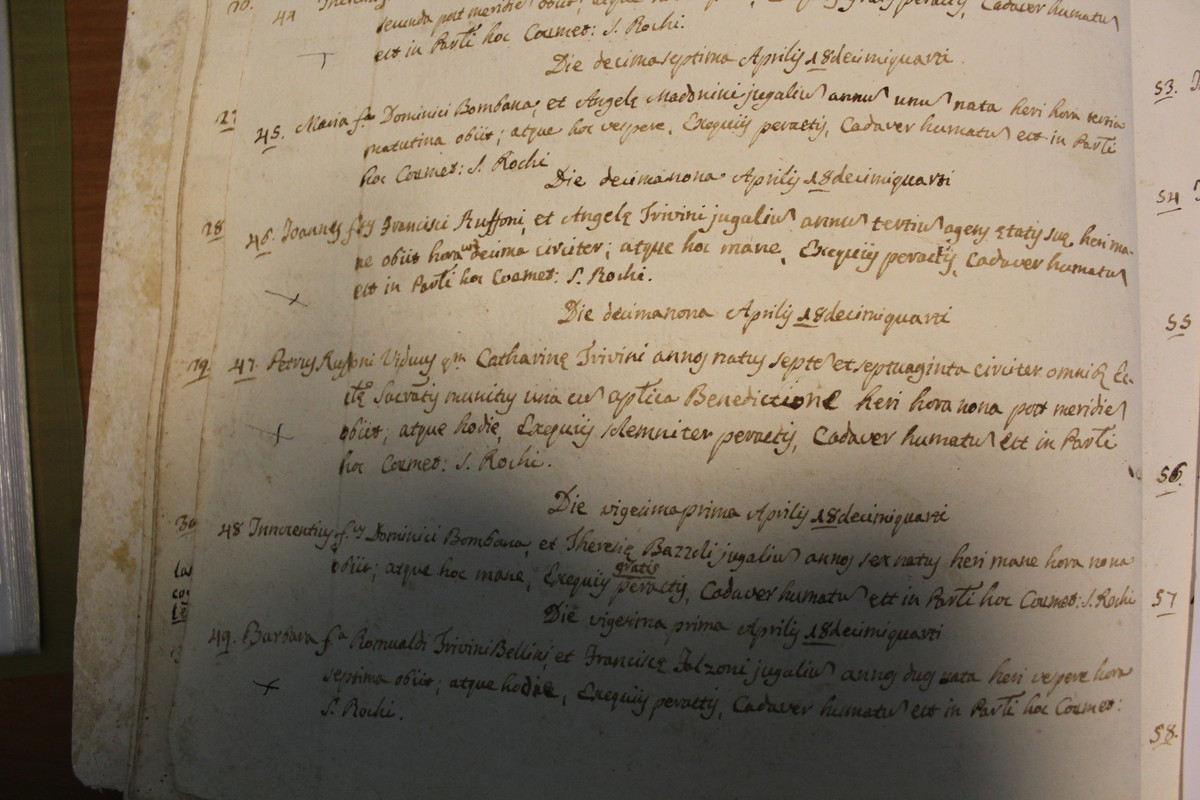 secunda post meridie obiit; atque
peractis, Cadaver humatu
est in Parli hoc Coemet: S. Rochi.
Die decimaseptima Aprilis 18decimiquarti
27
45. Maria fa Dominici Bombana, et Angelę Madonini jugaliu annu unu nata heri hora tertia
matutina obiit; atque hoc vespere, Exequiis peractis, Cadaver humatu est in Parli
hoc Coemet: S. Rochi
Die decimanona Aprilis 18decimiquarti
28
46. Joannes fus Francisci Ruffoni, et Angelę Trivini jugaliu annu tertiu agens ętatis suę, heri ma-
ne obiit hora undecima circiter; atque hoc mane, Exequiis peractis, Cadaver humatu
est in Parli hoc Coemet: S. Rochi.
Die decimanona Aprilis 18decimiquarti
29. 47. Petrus Ruffoni Viduus qm Catharinę Trivini annos natus septe et septuaginta circiter omnibȝ Ec-
Sacratis munitus una cu aplica Benedictione heri hora nona post meridie
obiit; atque hodie, Exequiis solemniter peractis, Cadaver humatu est in Parli
hoc Coemet: S. Rochi.
Die vigesimaprima Aprilis 18decimiquarti
30 48 Innocentius fus Dominici Bombana, et Theresię Bazzoli jugaliu annos sex natus heri mane hora nona
obiit; atque hoc mane, Exequiis gratis peractis, Cadaver humatu est in Parli hoc Coemet: S. Rochi
Die vigesima prima Aprilis 18decimiquarti
49. Barbara fa Romualdi Trivini Bellini et Franciscę Falzoni jugaliu annos duos nata heri vespere hora
septima obiit; atque hodie, Exequiis peractis, Cadaver humatu est in Parli hoc Coemet:
S. Rochi.
53.
54
55
56.
57
58.